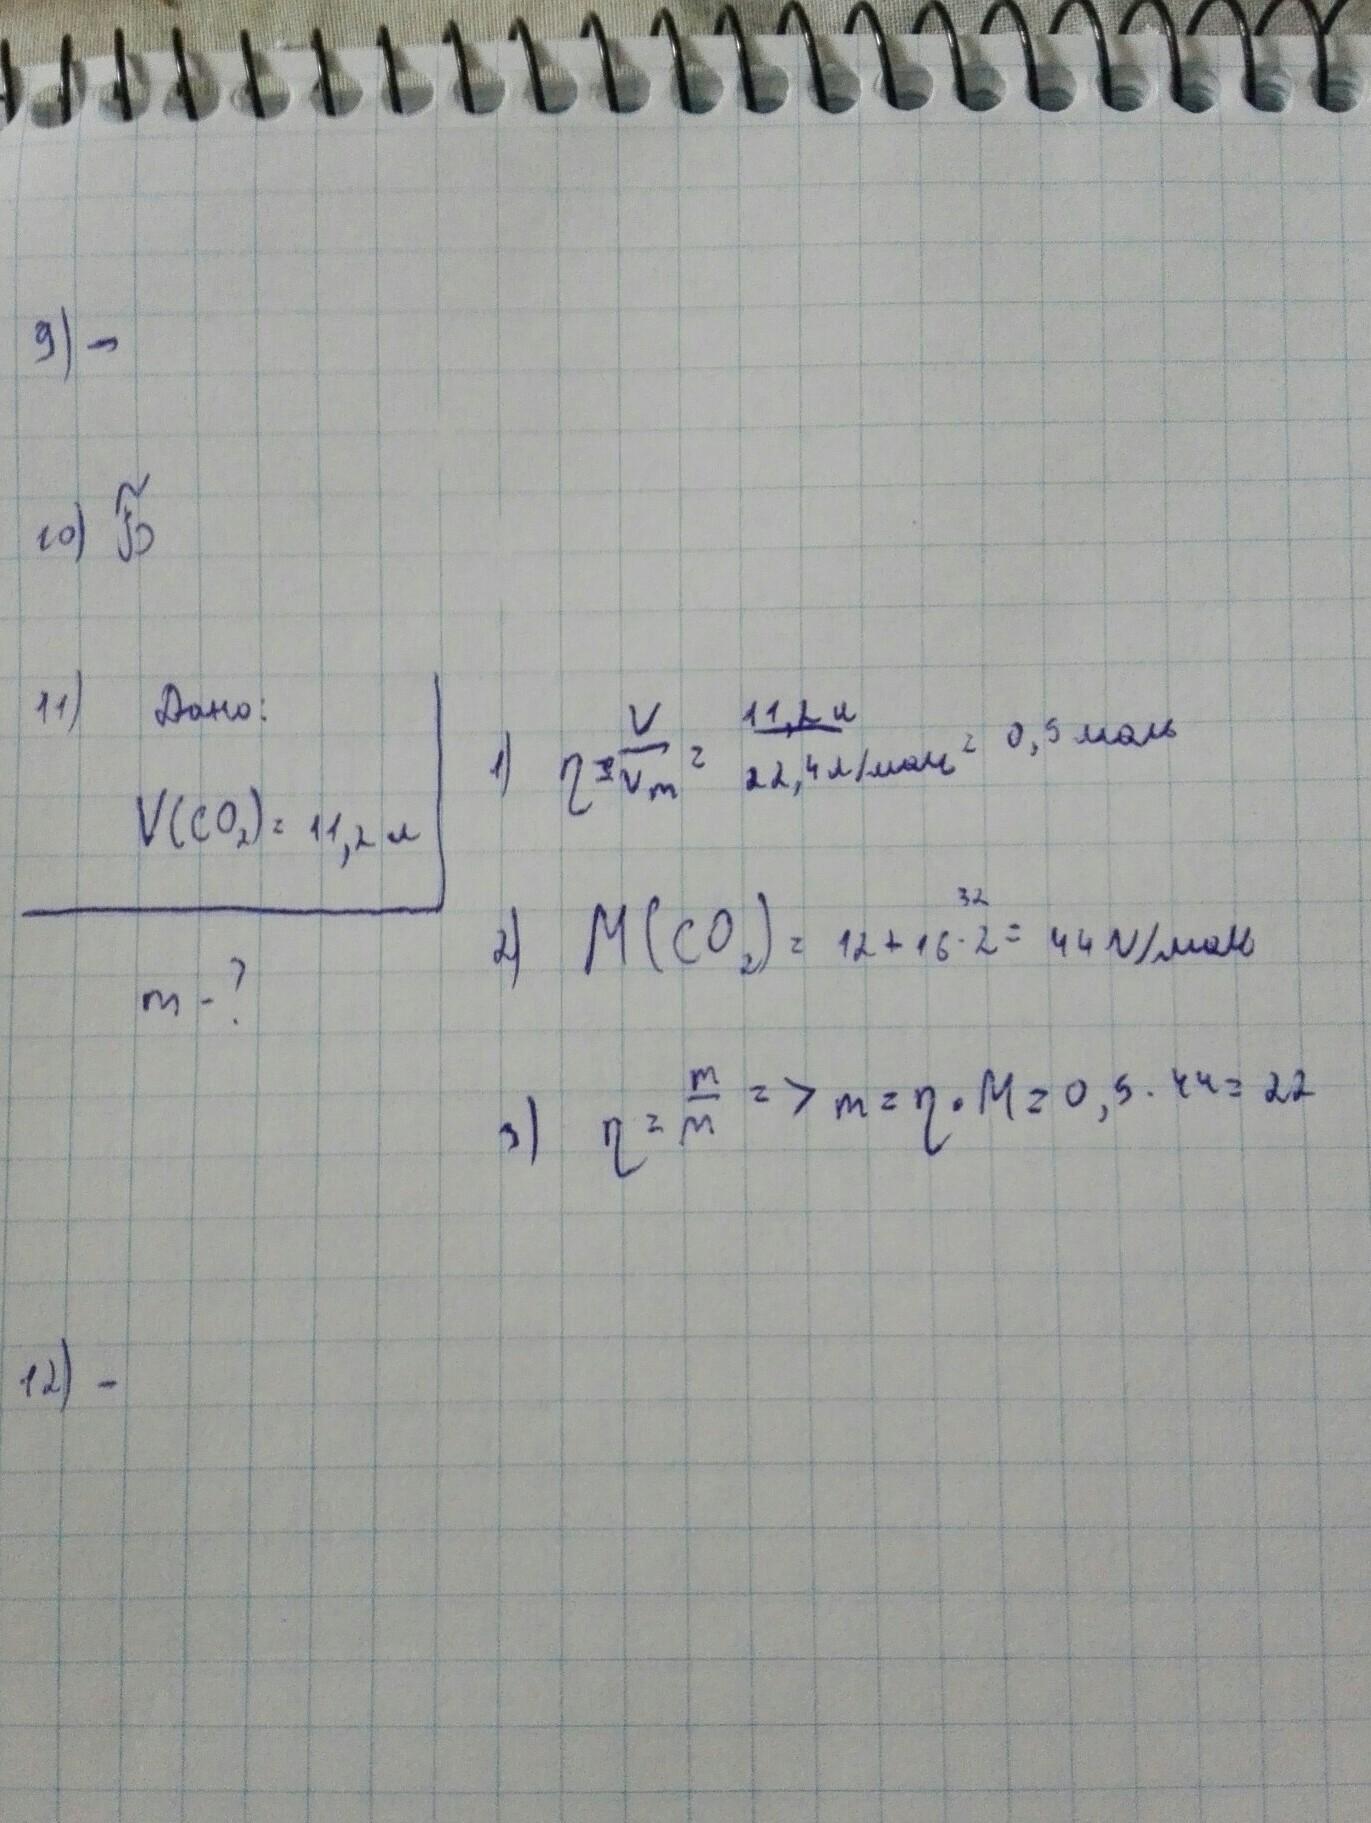 9) -
10) Б
11) Дано:
V(CO₂) = 11,2 л
m - ?
1) η = V/Vm = 11,2 л / 22,4 л/моль = 0,5 моль
32
2) M(CO₂) = 12 + 16 · 2 = 44 г/моль
3) η = m/M => m = η · M = 0,5 · 44 = 22
12) -